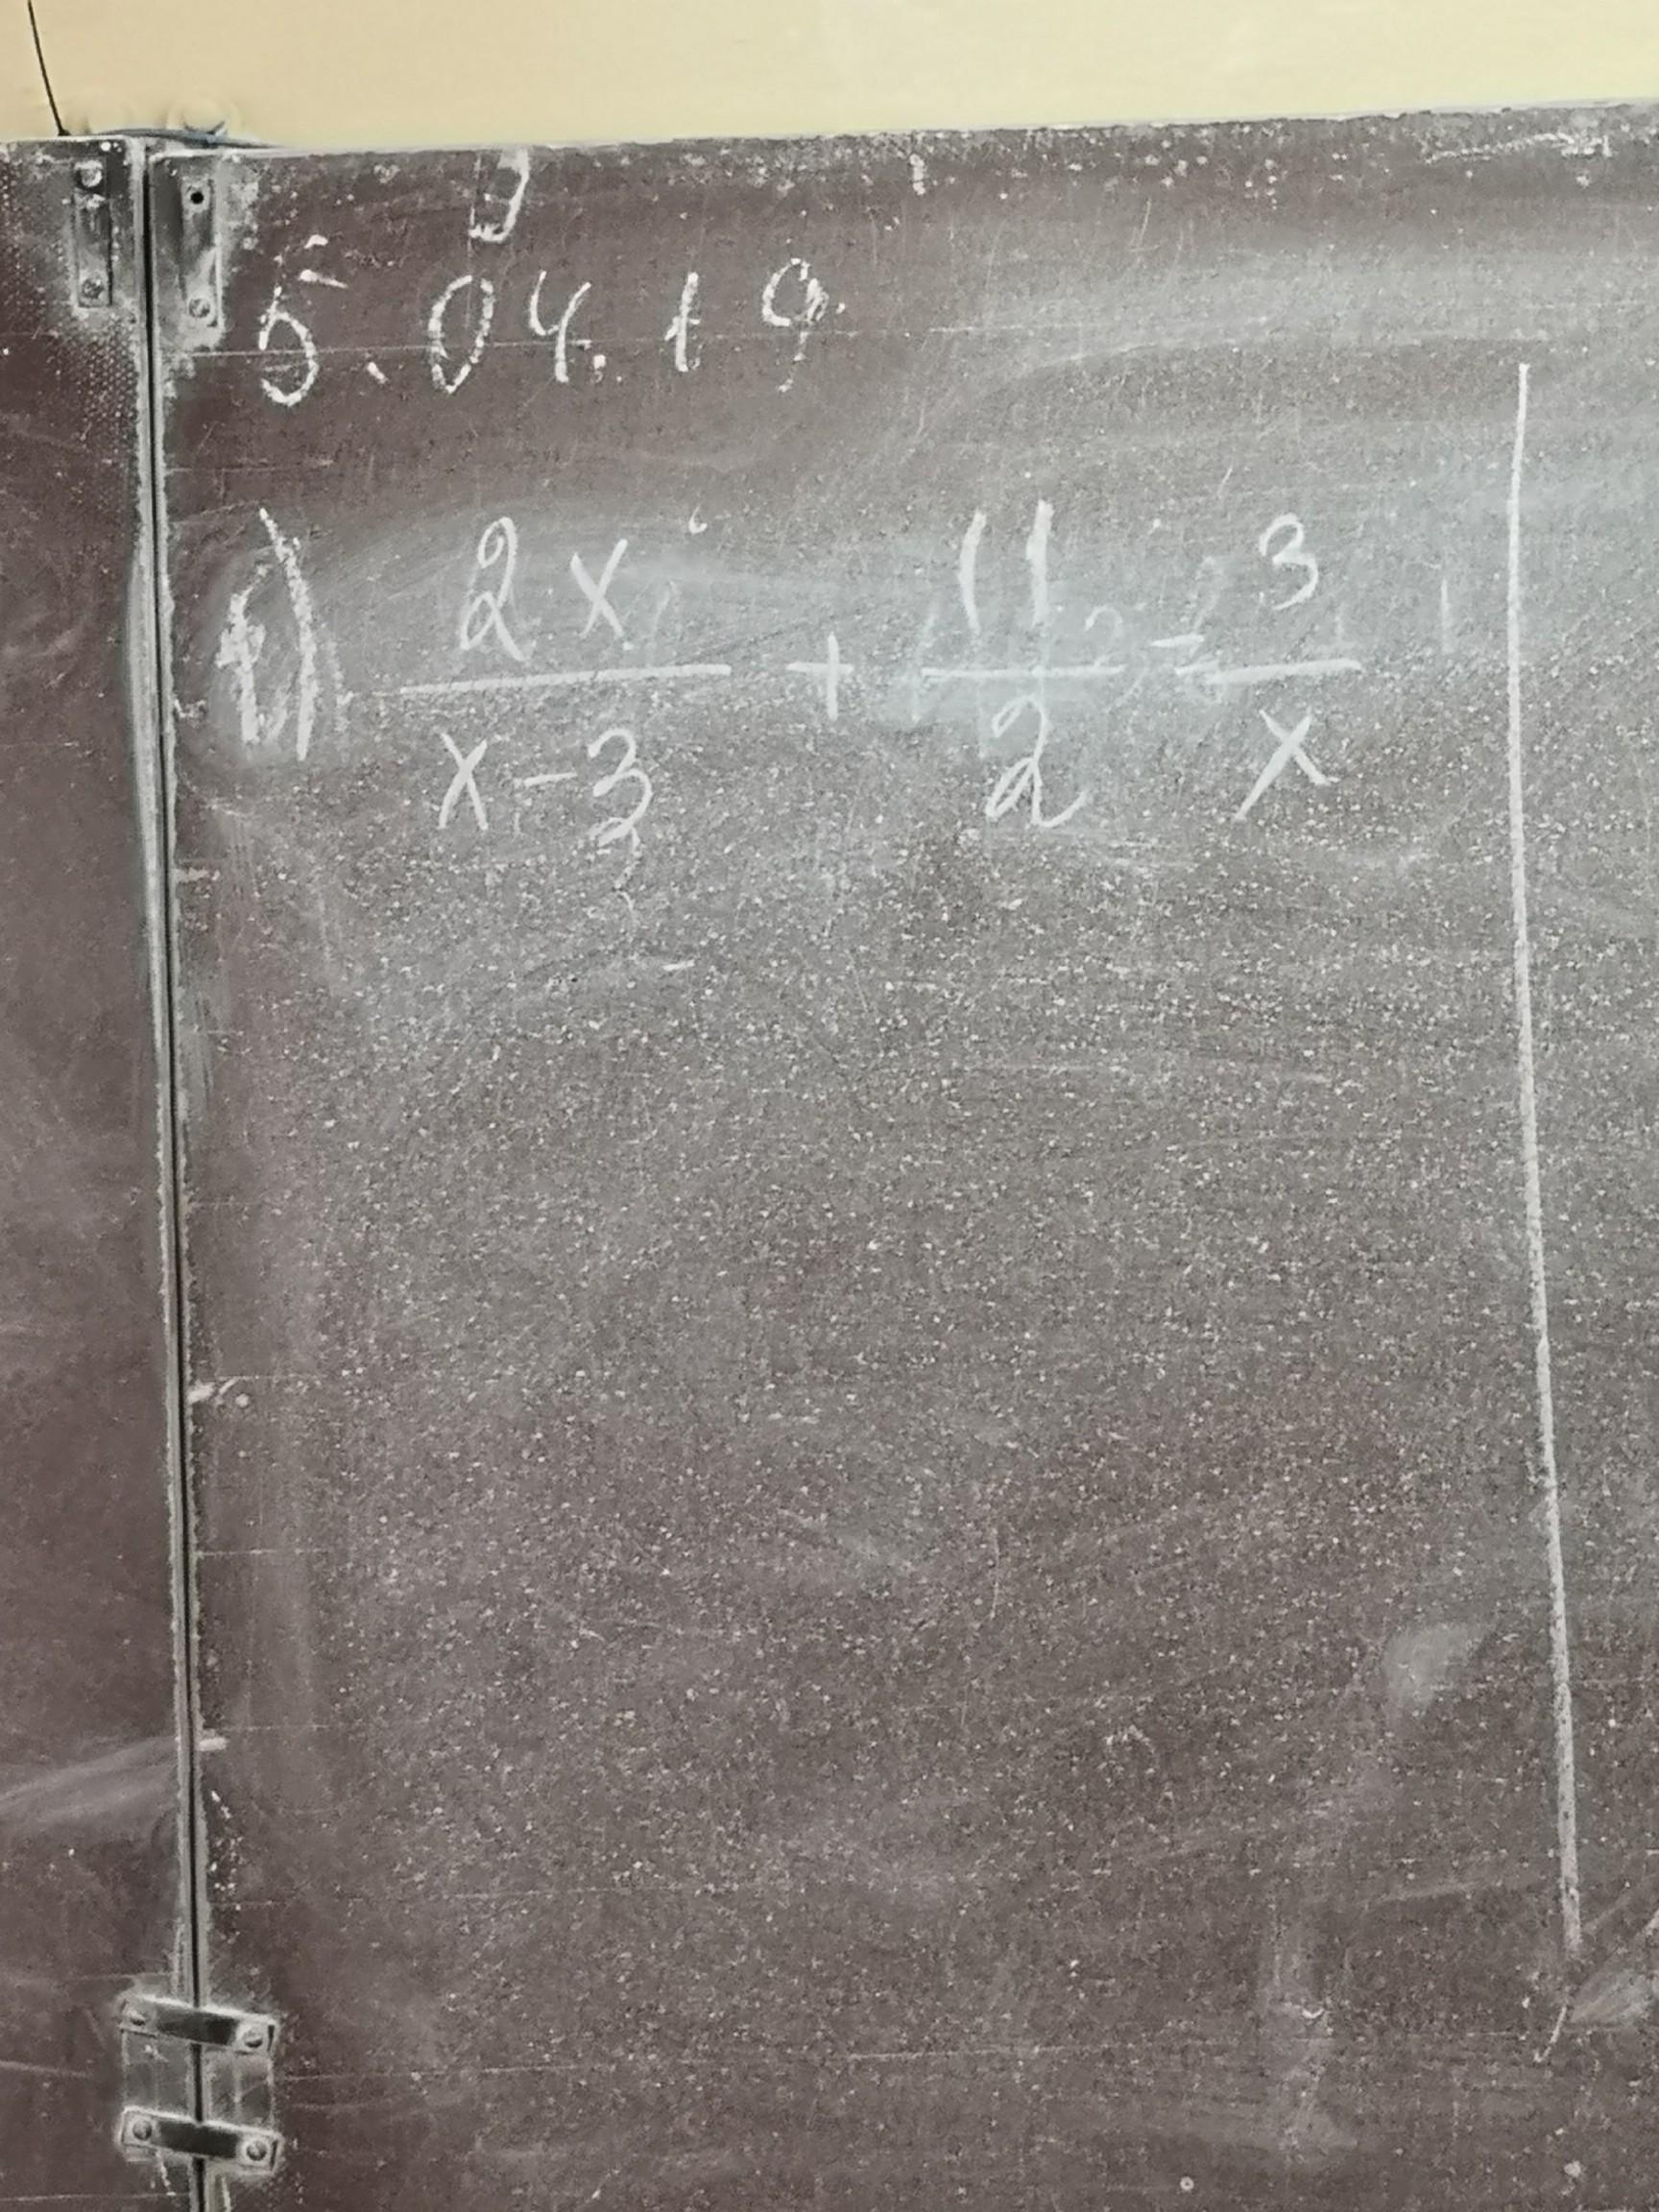 5.04.19
1) 2x/(x-3) + 11/2 = 3/x